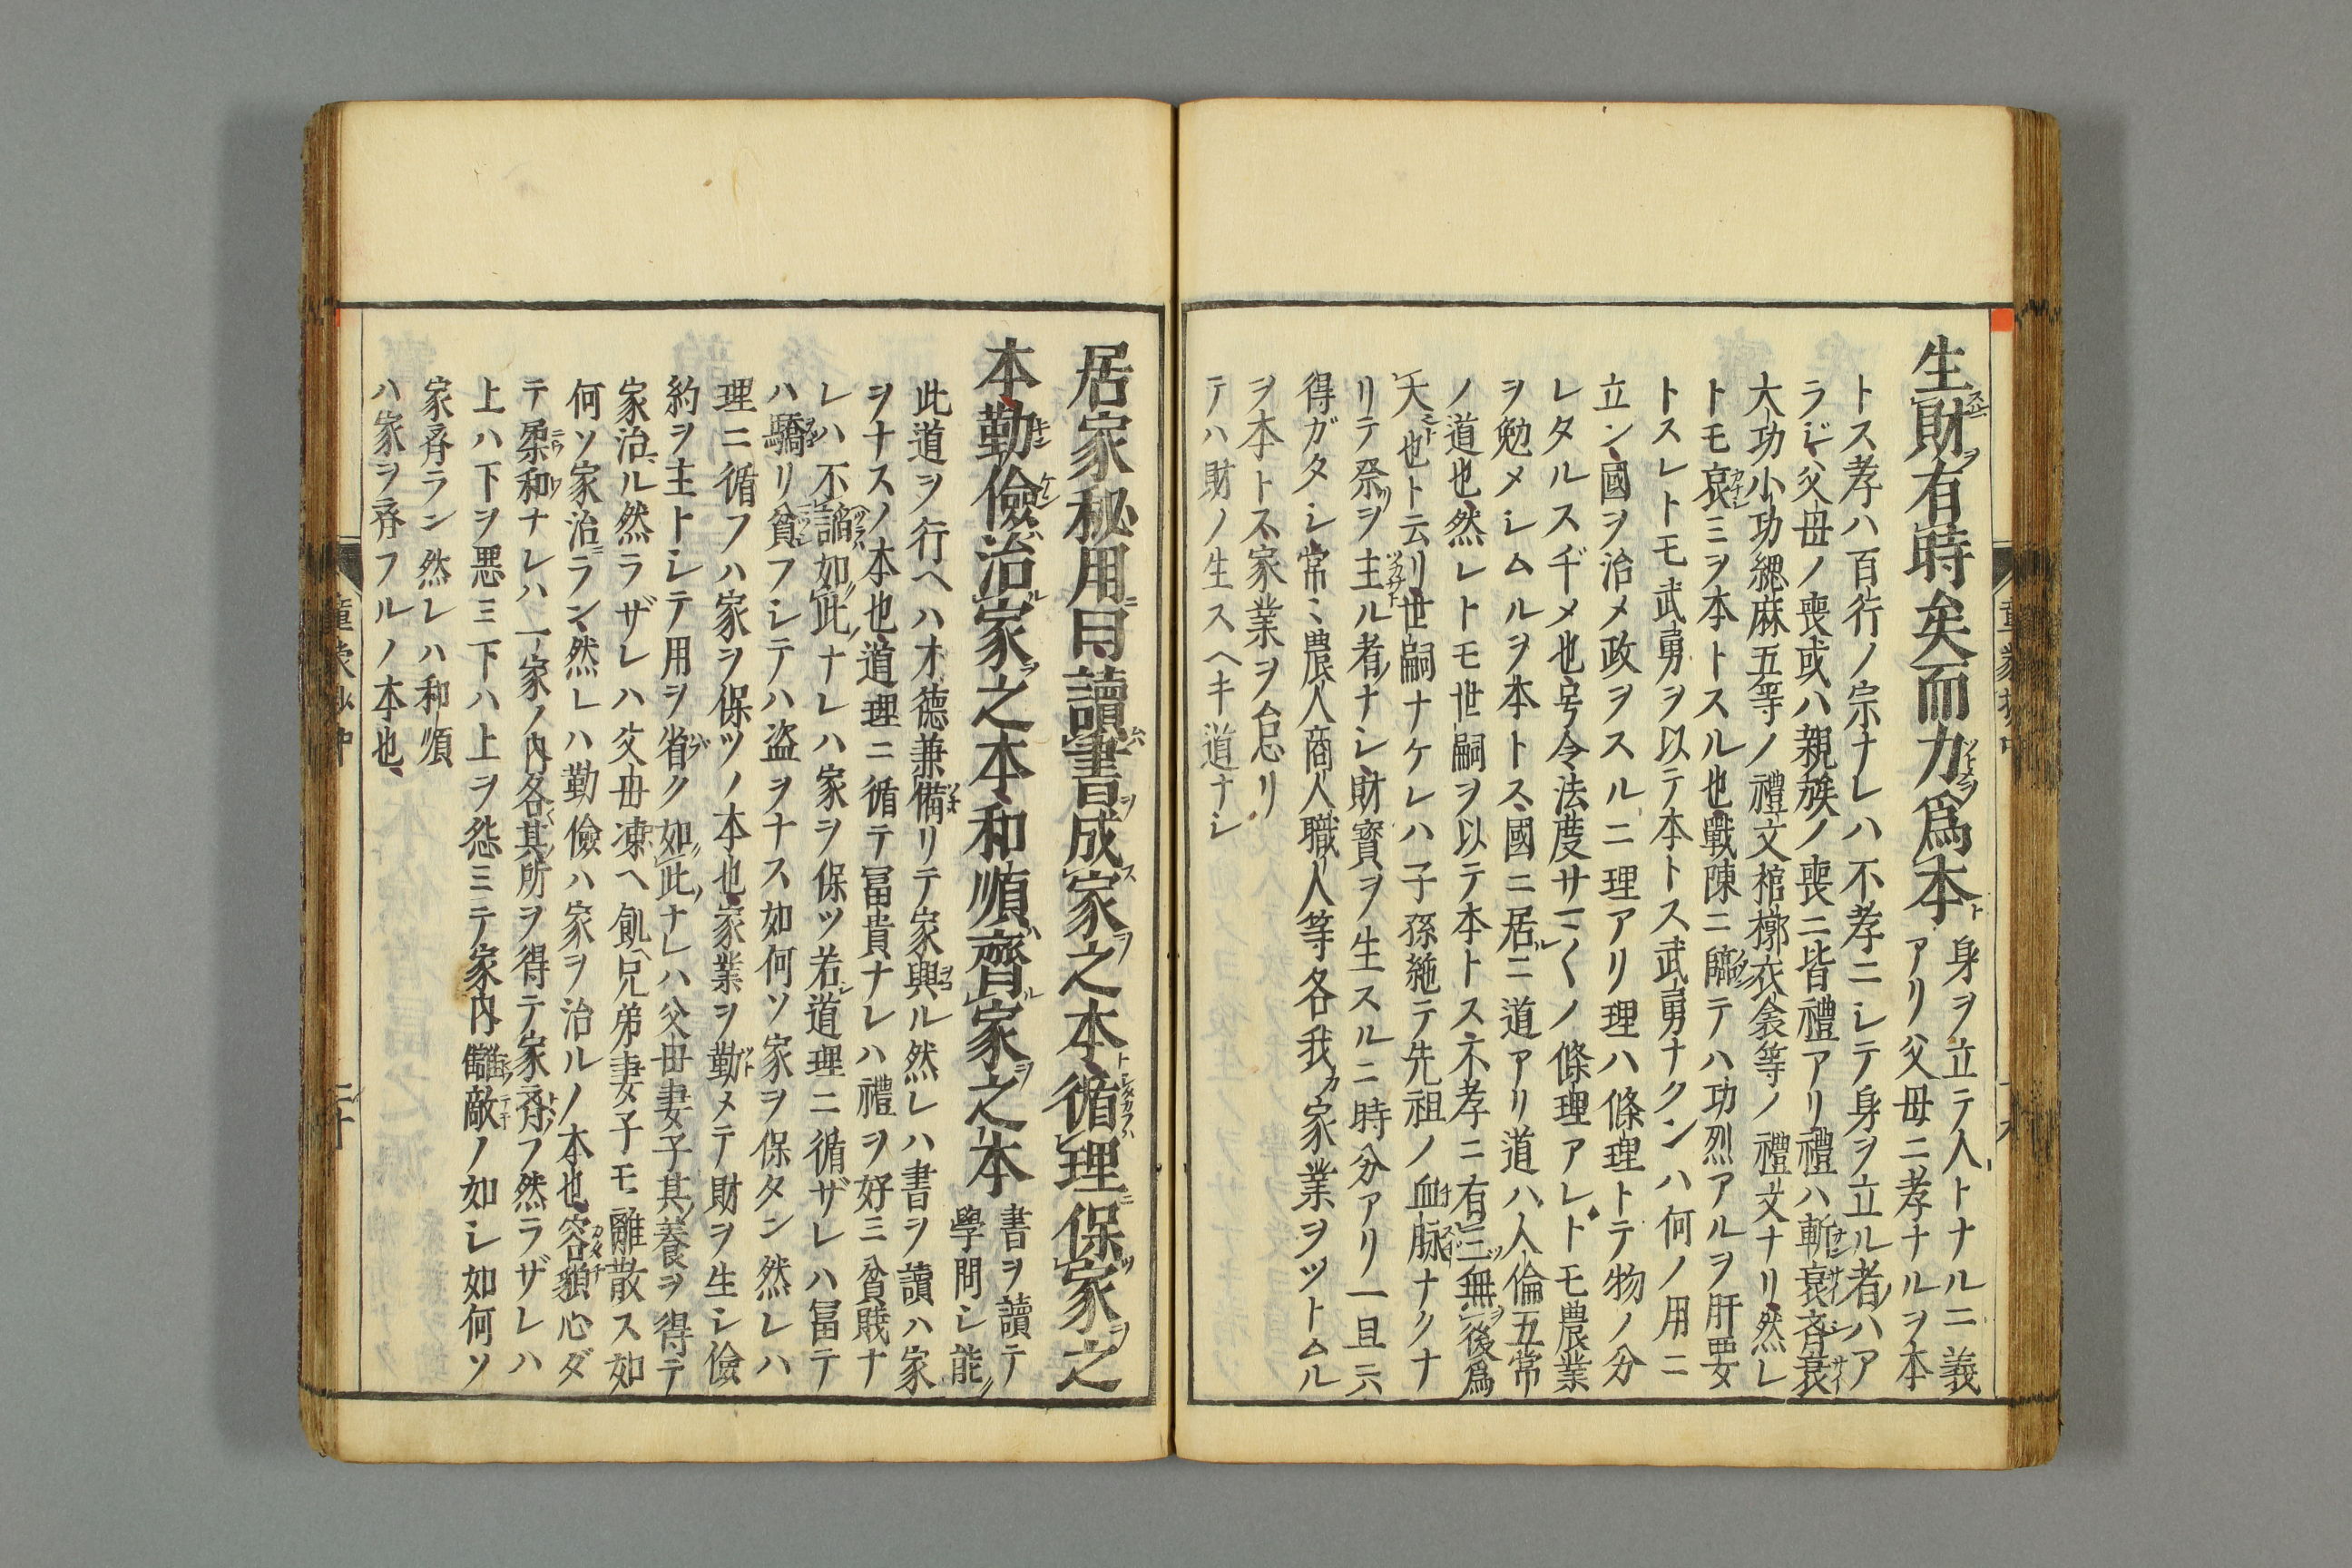 生財有時矣而力爲本
身ヲ立テ人トナルニ義
アリ父母ニ孝ナルヲ本
トス孝ハ百行ノ宗ナレハ不孝ニシテ身ヲ立ル者ハア
ラジ父母ノ喪或ハ親族ノ喪ニ皆禮アリ禮ハ斬衰齊衰
大功小功緦麻五等ノ禮文棺槨衣衾等ノ禮文ナリ然レ
トモ哀ミヲ本トスル也戰陳ニ臨テハ功烈アルヲ肝要
トスレトモ武勇ヲ以テ本トス武勇ナクンハ何ノ用ニ
立ン國ヲ治メ政ヲスルニ理アリ理ハ條理トテ物ノ分
レタルスヂメ也号令法度サマ〱ノ條理アレトモ農業
ヲ勉メシムルヲ本トス國ニ居ニ道アリ道ハ人倫五常
ノ道也然レトモ世嗣ヲ以テ本トス不孝ニ有三無後爲
大也ト云リ世嗣ナケレハ子孫絶テ先祖ノ血脉ナクナ
リテ祭ヲ主ル者ナシ財寶ヲ生スルニ時分アリ一旦ニ
得ガタシ常ニ農人商人職人等各我カ家業ヲツトムル
ヲ本トス家業ヲ怠リ
テハ財ノ生スヘキ道ナシ
童蒙抄中
居家秘用曰讀書成家之本循理保家之
本勤儉治家之本和順齊家之本
書ヲ讀テ
學問シ能
此道ヲ行ヘハ才德兼備リテ家興ル然レハ書ヲ讀ハ家
ヲナスノ本也道理ニ循テ冨貴ナレハ禮ヲ好ミ貧賎ナ
レハ不謟如此ナレハ家ヲ保ツ若道理ニ循ザレハ冨テ
ハ驕リ貧フシテハ盗ヲナス如何ソ家ヲ保タン然レハ
理ニ循フハ家ヲ保ツノ本也家業ヲ勤メテ財ヲ生シ儉
約ヲ主トシテ用ヲ省ク如此ナレハ父母妻子其養ヲ得テ
家治ル然ラザレハ父母凍ヘ飢兄弟妻子モ離散ス如
何ソ家治ラン然レハ勤儉ハ家ヲ治ルノ本也容貌心ダ
テ柔和ナレハ一家ノ内各其所ヲ得テ家齊フ然ラザレハ
上ハ下ヲ悪ミ下ハ上ヲ怨ミテ家内讎敵ノ如シ如何ソ
家齊ラン然レハ和順
ハ家ヲ齊フルノ本也
童蒙抄中
二十